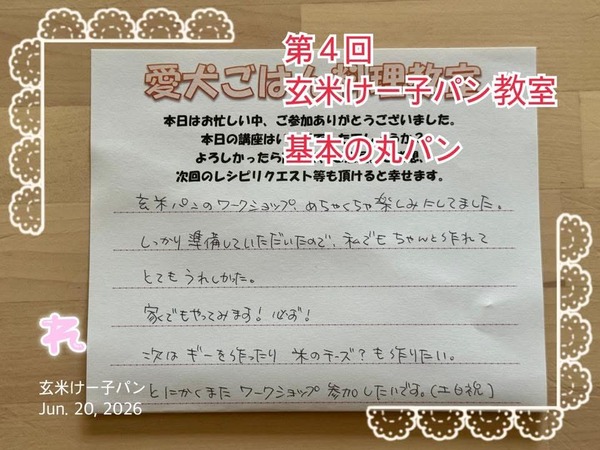 第4回
玄米けー子パン教室
基本の丸パン
愛犬ごはん料理教室
本日はお忙しい中、ご参加ありがとうございました。
本日の講座はい
よろしかったら
次回のレシピリクエスト等も頂けると幸せます。
玄米パンのワークショップ、めちゃくちゃ楽しみにしてました。
しっかり準備していただいたので、私でもちゃんと作れて
とてもうれしかった。
家でもやってみます!必ず!
次はギーを作ったり 米のチーズ?も作りたい。
とにかくまたワークショップ参加したいです。(土日祝)
れ
玄米けー子パン
Jun. 20, 2026